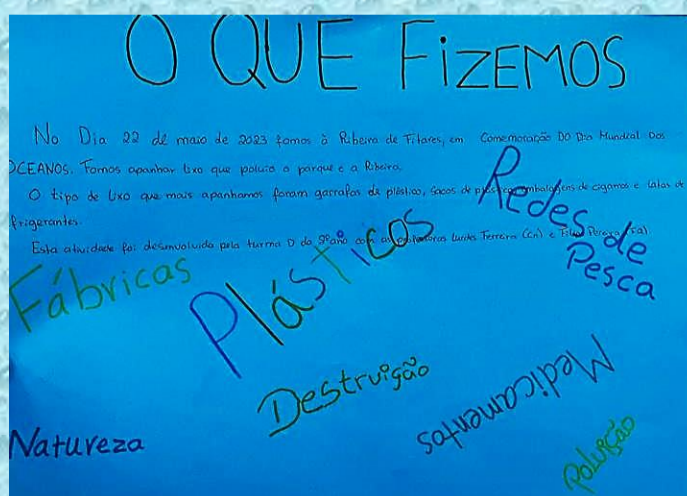 O QUE FiZEMOS
No Dia 22 de maio de 2023 fomos à Ribeira de Fitares, em Comemoração DO Dia Mundial Dos
OCEANOS. Fomos apanhar lixo que poluia o parque e a Ribeira.
O tipo de lixo que mais apanhamos foram garrafas de plástico, sacos de plástico, embalagens de cigarros e latas de
frigerantes.
Esta atividade foi desenvolvida pela turma D do 9º ano com as professoras Ferreira (cn) e
Redes de
Pesca
Fábricas
Plásticos
Destruição
Medicamentos
Natureza
Poluição